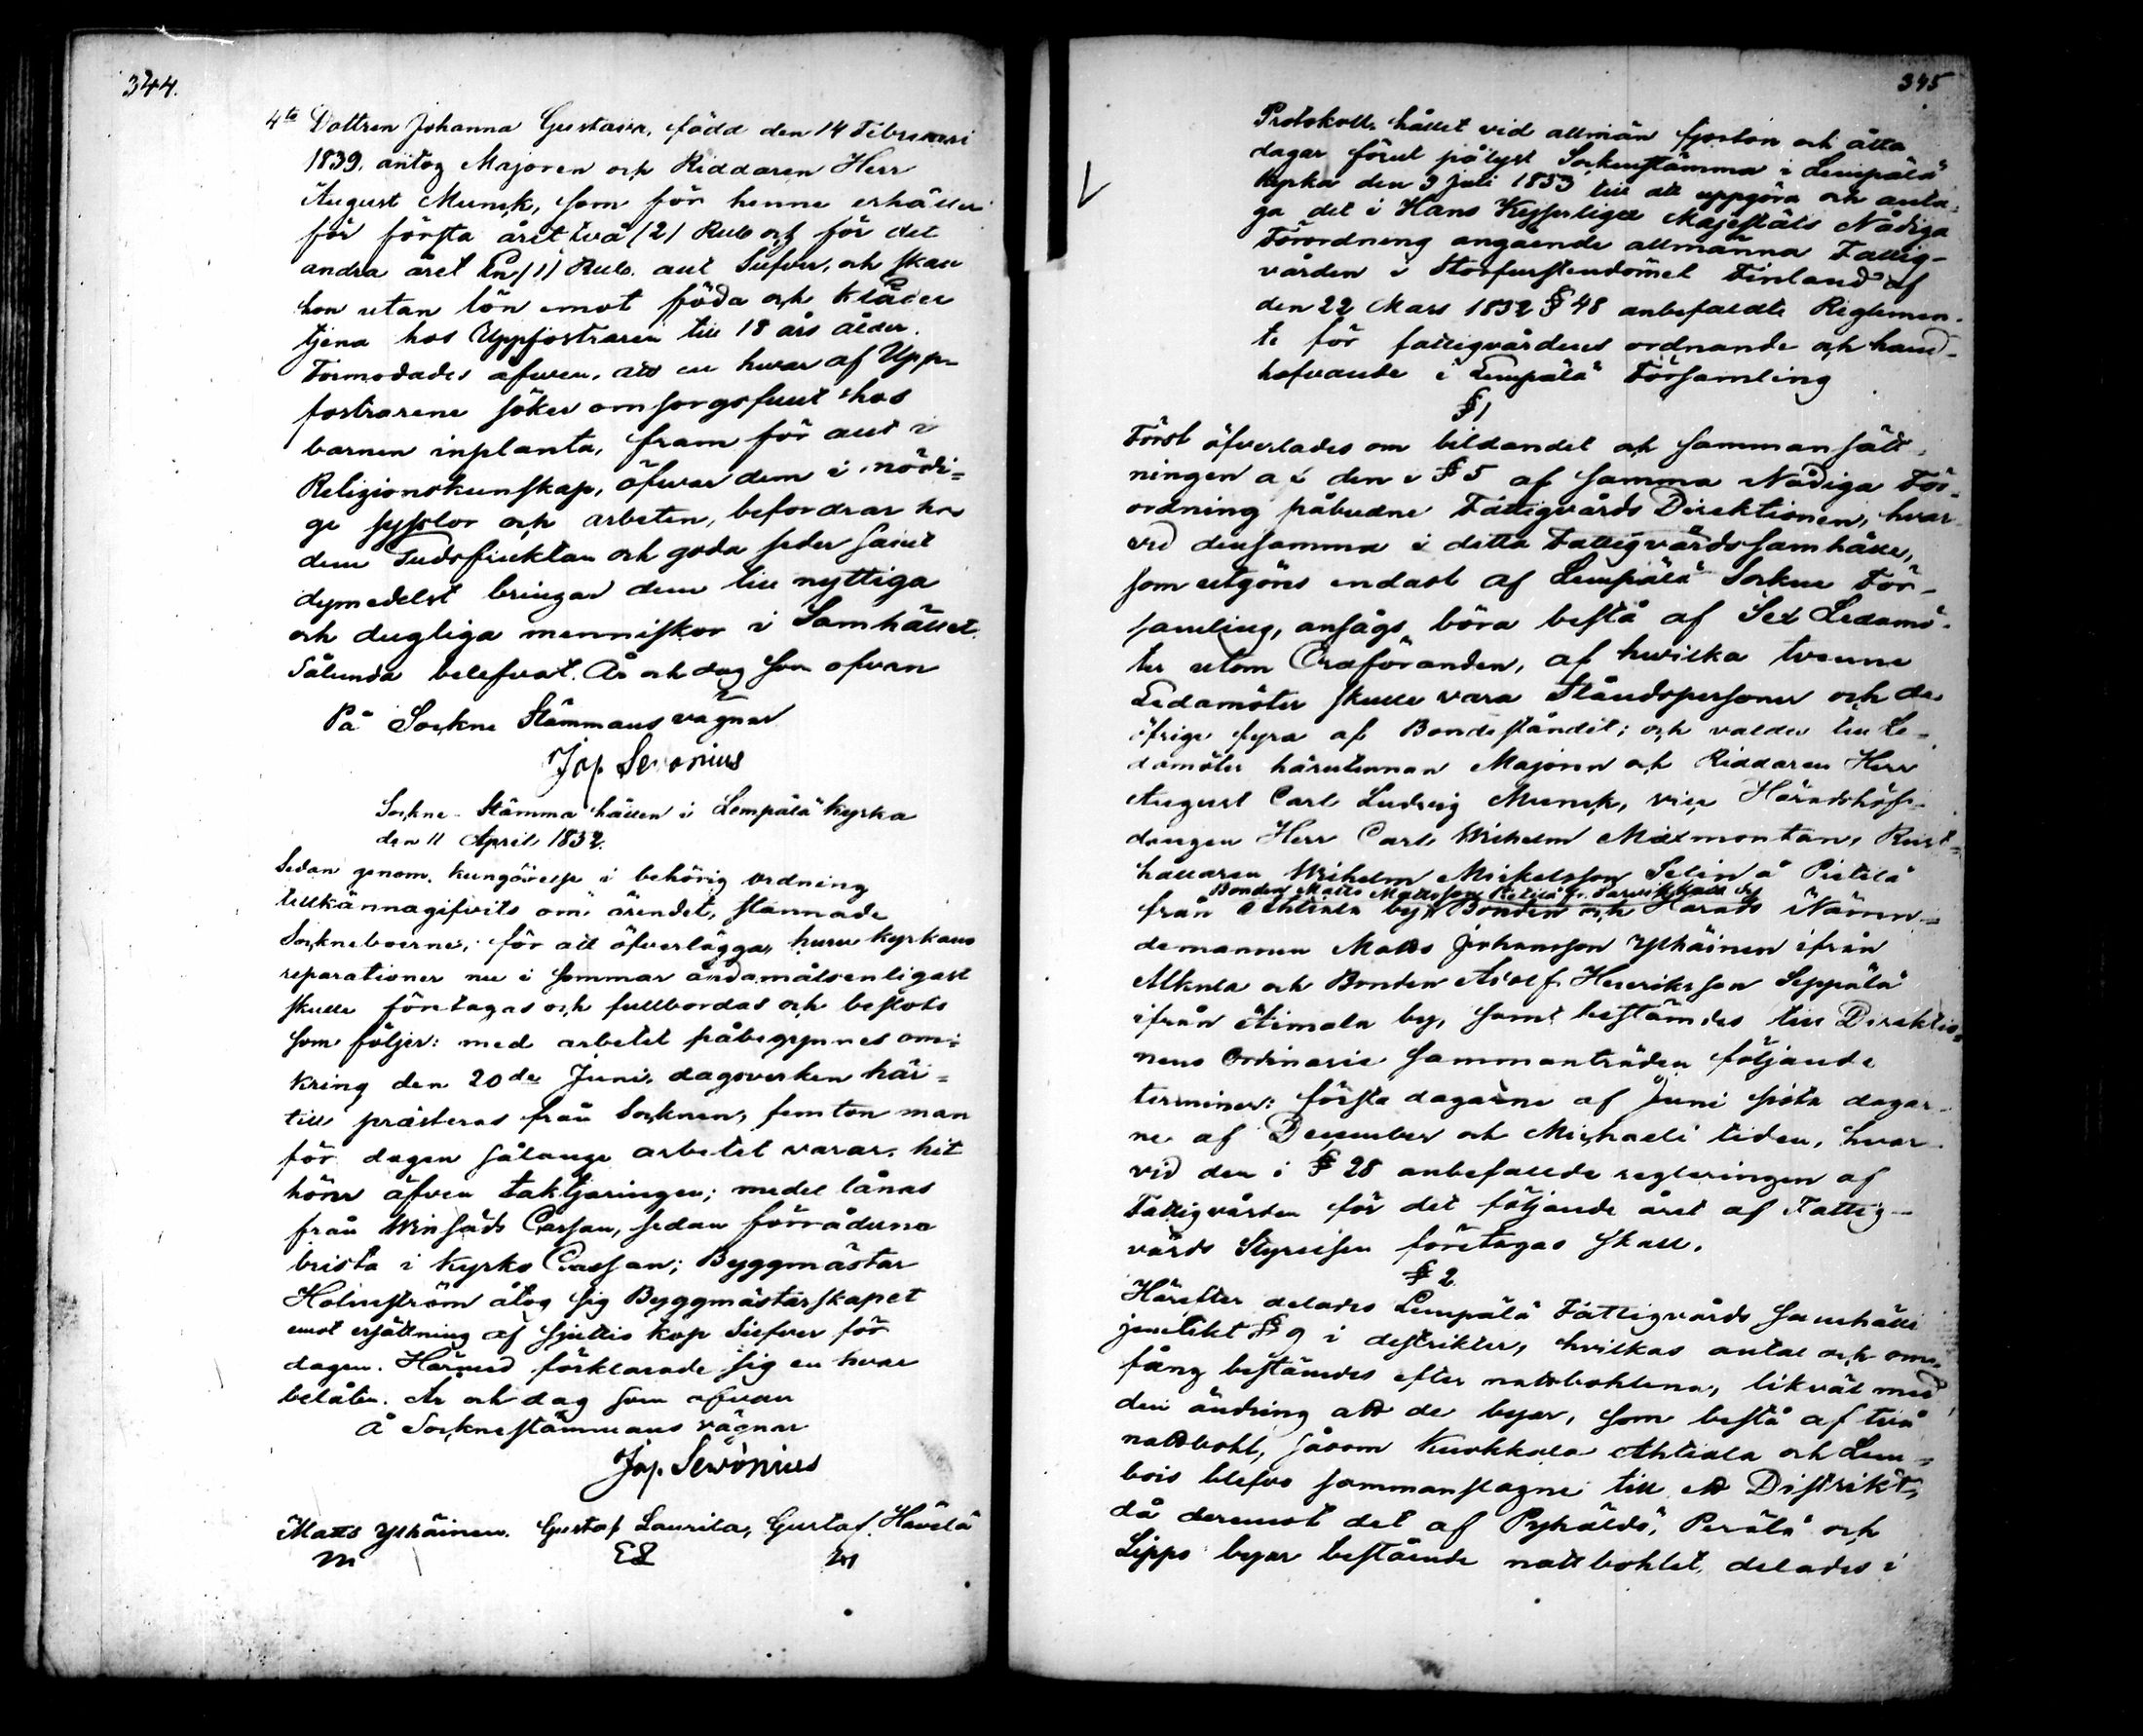 344.
4te Dottren Johanna Gustava, född den 14 Februari
1839, antog Majoren och Riddaren Herr
August Munck, som för henne erhåller
för första året två (2) Rub och för det
andra året En (1) Rub. allt Silfver, och skall
hon utan lön emot föda och kläder
tjena hos Uppfostraren till 18 års ålder.
Förmodades äfven, att en hvar af Upp-
fostrarene söker omsorgsfullt hos
barnen inplanta, fram för allt i
Religionskunskap, öfvar dem i nödi=
ge sysslor och arbeten, befordrar hos
dem Gudsfruktan och goda seder samt
dymedelst bringar dem till nyttiga
och dugliga menniskor i Samhället.
Sålunda belefvat. År och dag som ofvan
På Sockne Stämmans vägnar
Jos. Servonius
Sockne-Stämma hållen i Lempälä Kyrka
den 11 April 1852.
Sedan genom kungörelse i behörig ordning
tillkännagifvits om ärendet, stannade
Sockneboerne, för att öfverlägga, huru kyrkans
reparationer nu i sommar ändamålsenligast
skulle företagas och fullbordas och beslöts
som följer: med arbetet påbegynnes om=
kring den 20de Juni, dagsverken här=
till præsteras från Socknen, femton man
för dagen sålänge arbetet varar, hit
hörer äfven taktjäringen; medel lånas
från Winsäds Cassan, sedan förråderna
brista i Kyrko Cassan; Byggmästar
Holmström åtog sig Byggmästarskapet
emot ersättning af sjuttio kop Silfver för
dagen. Härmed förklarade sig en hvar
belåten. År och dag som ofvan
Å Socknestämmans vägnar
Jos. Servonius
Matts Yskäinen. Gustaf Laurila, Gustaf Havelä
m
345
Protokoll hållet vid allmän fjorton och åtta
dagar förut pålyst Sockenstämma i Lempälä
Kyrka den 3 Juli 1853 till att uppgöra och anta=
ga det i Hans Kejserliga Majestäts Nådiga
Förordning angående allmänna Fattig-
vården i Storfurstendömet Finland af
den 22 Mars 1852 § 48 anbefallde Reglemen-
te för fattigvårdens ordnande och hand-
hafvande i Lempälä Församling
§ 1
Först öfverlades om bildandet och sammansätt-
ningen af den i § 5 af samma Nådiga För-
ordning påbudne Fattigvårds Direktionen, hvar-
vid densamma i detta Fattigvårdssamhälle,
som utgöres endast af Lempälä Sockne För-
samling, ansågs böra bestå af Sex Ledamö-
ter utom Ordföranden, af hvilka tvenne
Ledamöter skulle vara Ståndspersoner och de
öfrige fyra af Bondeståndet; och valdes till Le-
damöter härutinnan Majoren och Riddaren Herr
August Carl Ludvig Munck, vice Häradshöf-
dingen Herr Carl Wilhelm Maxmontan, Rust=
hållaren Wilhelm Mickelsson Selin å Pietilä
Bonden Matts Mattsson
från Ahtiala by, Bonden och Härads Nämn=
demannen Matts Johansson Yskäinen ifrån
Alkula och Bonden Adolf Henriksson Seppälä
ifrån Aimala by, samt bestämdes till Direktio=
nens Ordinarie sammanträden följande
terminer: första dagarne af Juni sista dagar-
ne af December och Michaeli tiden, hvar-
vid den i § 28 anbefallde regleringen af
Fattigvården för det följande året af Fattig-
vårds Styrelsen företagas skall.
§ 2
Härefter delades Lempälä Fattigvårds samhälle
jemlikt § 9 i distrikter, hvilkas antal och om=
fång bestämdes efter nattbohlena, likväl med
den ändring att de byar, som bestå af två
nattbohl, såsom Kuokkala Ahtiala och Lem=
bois blefvo sammanslagne till ett Distrikt,
då deremot det af Pyhäldö, Perälä och
Lippo byar bestående nattbohlet, delades i